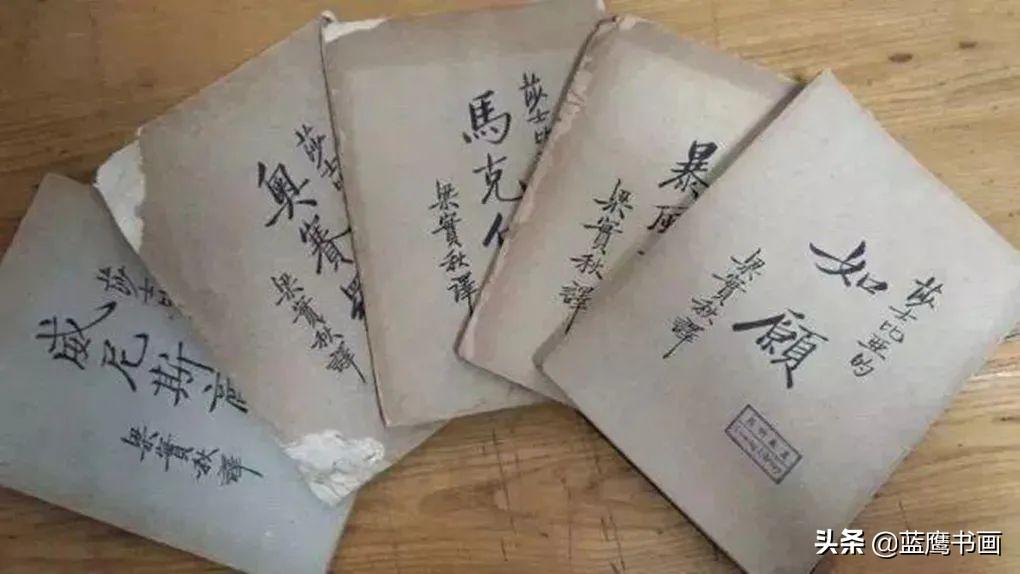 莎士
威尼斯
梁實秋譯
莎士
奧賽
梁實秋譯
莎士比
馬克
梁實秋譯
暴
梁實秋譯
莎士比亞的
如願
梁實秋譯
Library
头条 @蓝鹰书画